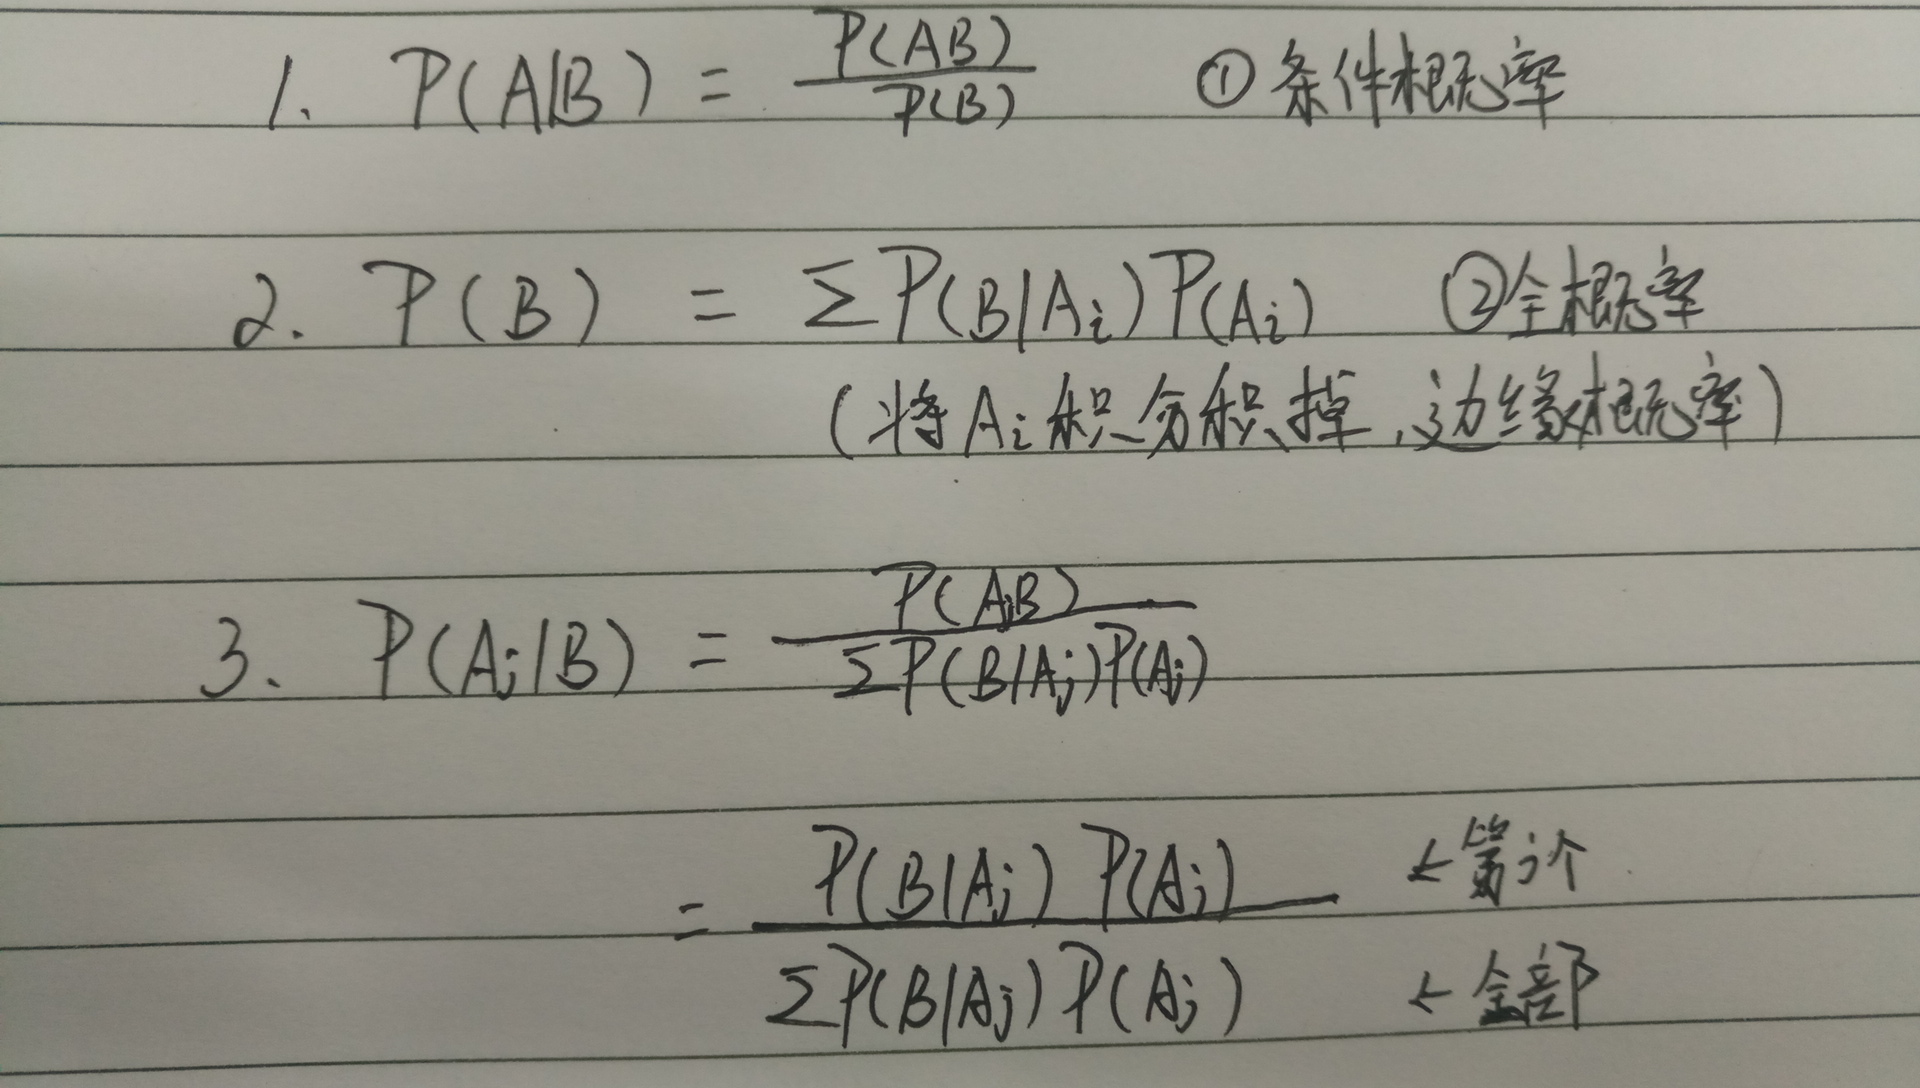 1. P(A|B) = P(AB)/P(B) ①条件概率
2. P(B) = ΣP(B|Ai)P(Ai) ②全概率
(将Ai积分积掉,边缘概率)
3. P(Aj|B) = P(AjB)/ΣP(B|Aj)P(Aj)
= P(B|Aj)P(Aj) ←第j个
ΣP(B|Aj)P(Aj) ←全部